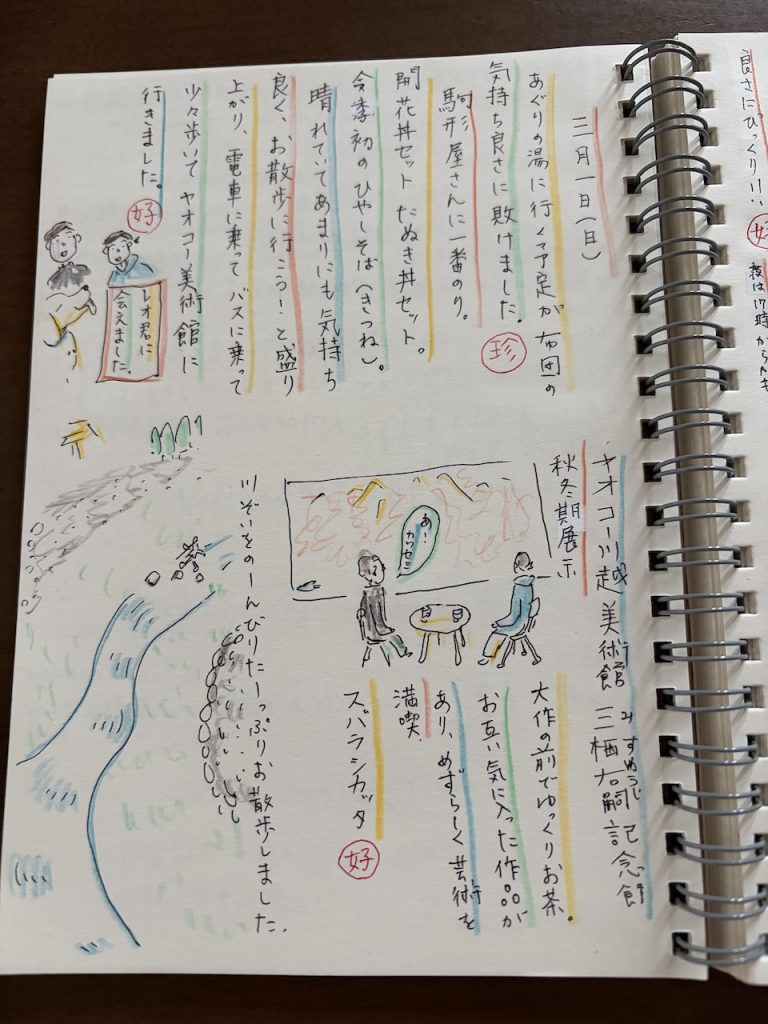 三月一日(日)
あぐりの湯に行く予定が布団の
気持ち良さに敗けました。珍
駒形屋さんに一番のり。
開花丼セットたぬき丼セット。
今季初のひやしそば(きつね)。
晴れていてあまりにも気持ち
良く、お散歩に行こう!と盛り
上がり、電車に乗ってバスに乗って
少々歩いてヤオコー美術館に
行きました。好
レオ君に
会えました。
ヤオコー川越美術館 三栖右嗣記念館
みすゆうじ
秋冬期展示
あ!
カワセミ
大作の前でゆっくりお茶。
お互い気に入った作品が
あり、めずらしく芸術を
満喫.
スバラシカッタ
好
川ぞいをのーんびりたーっぷりお散歩しました.
良さにびっくり!!
好
夜は17時から